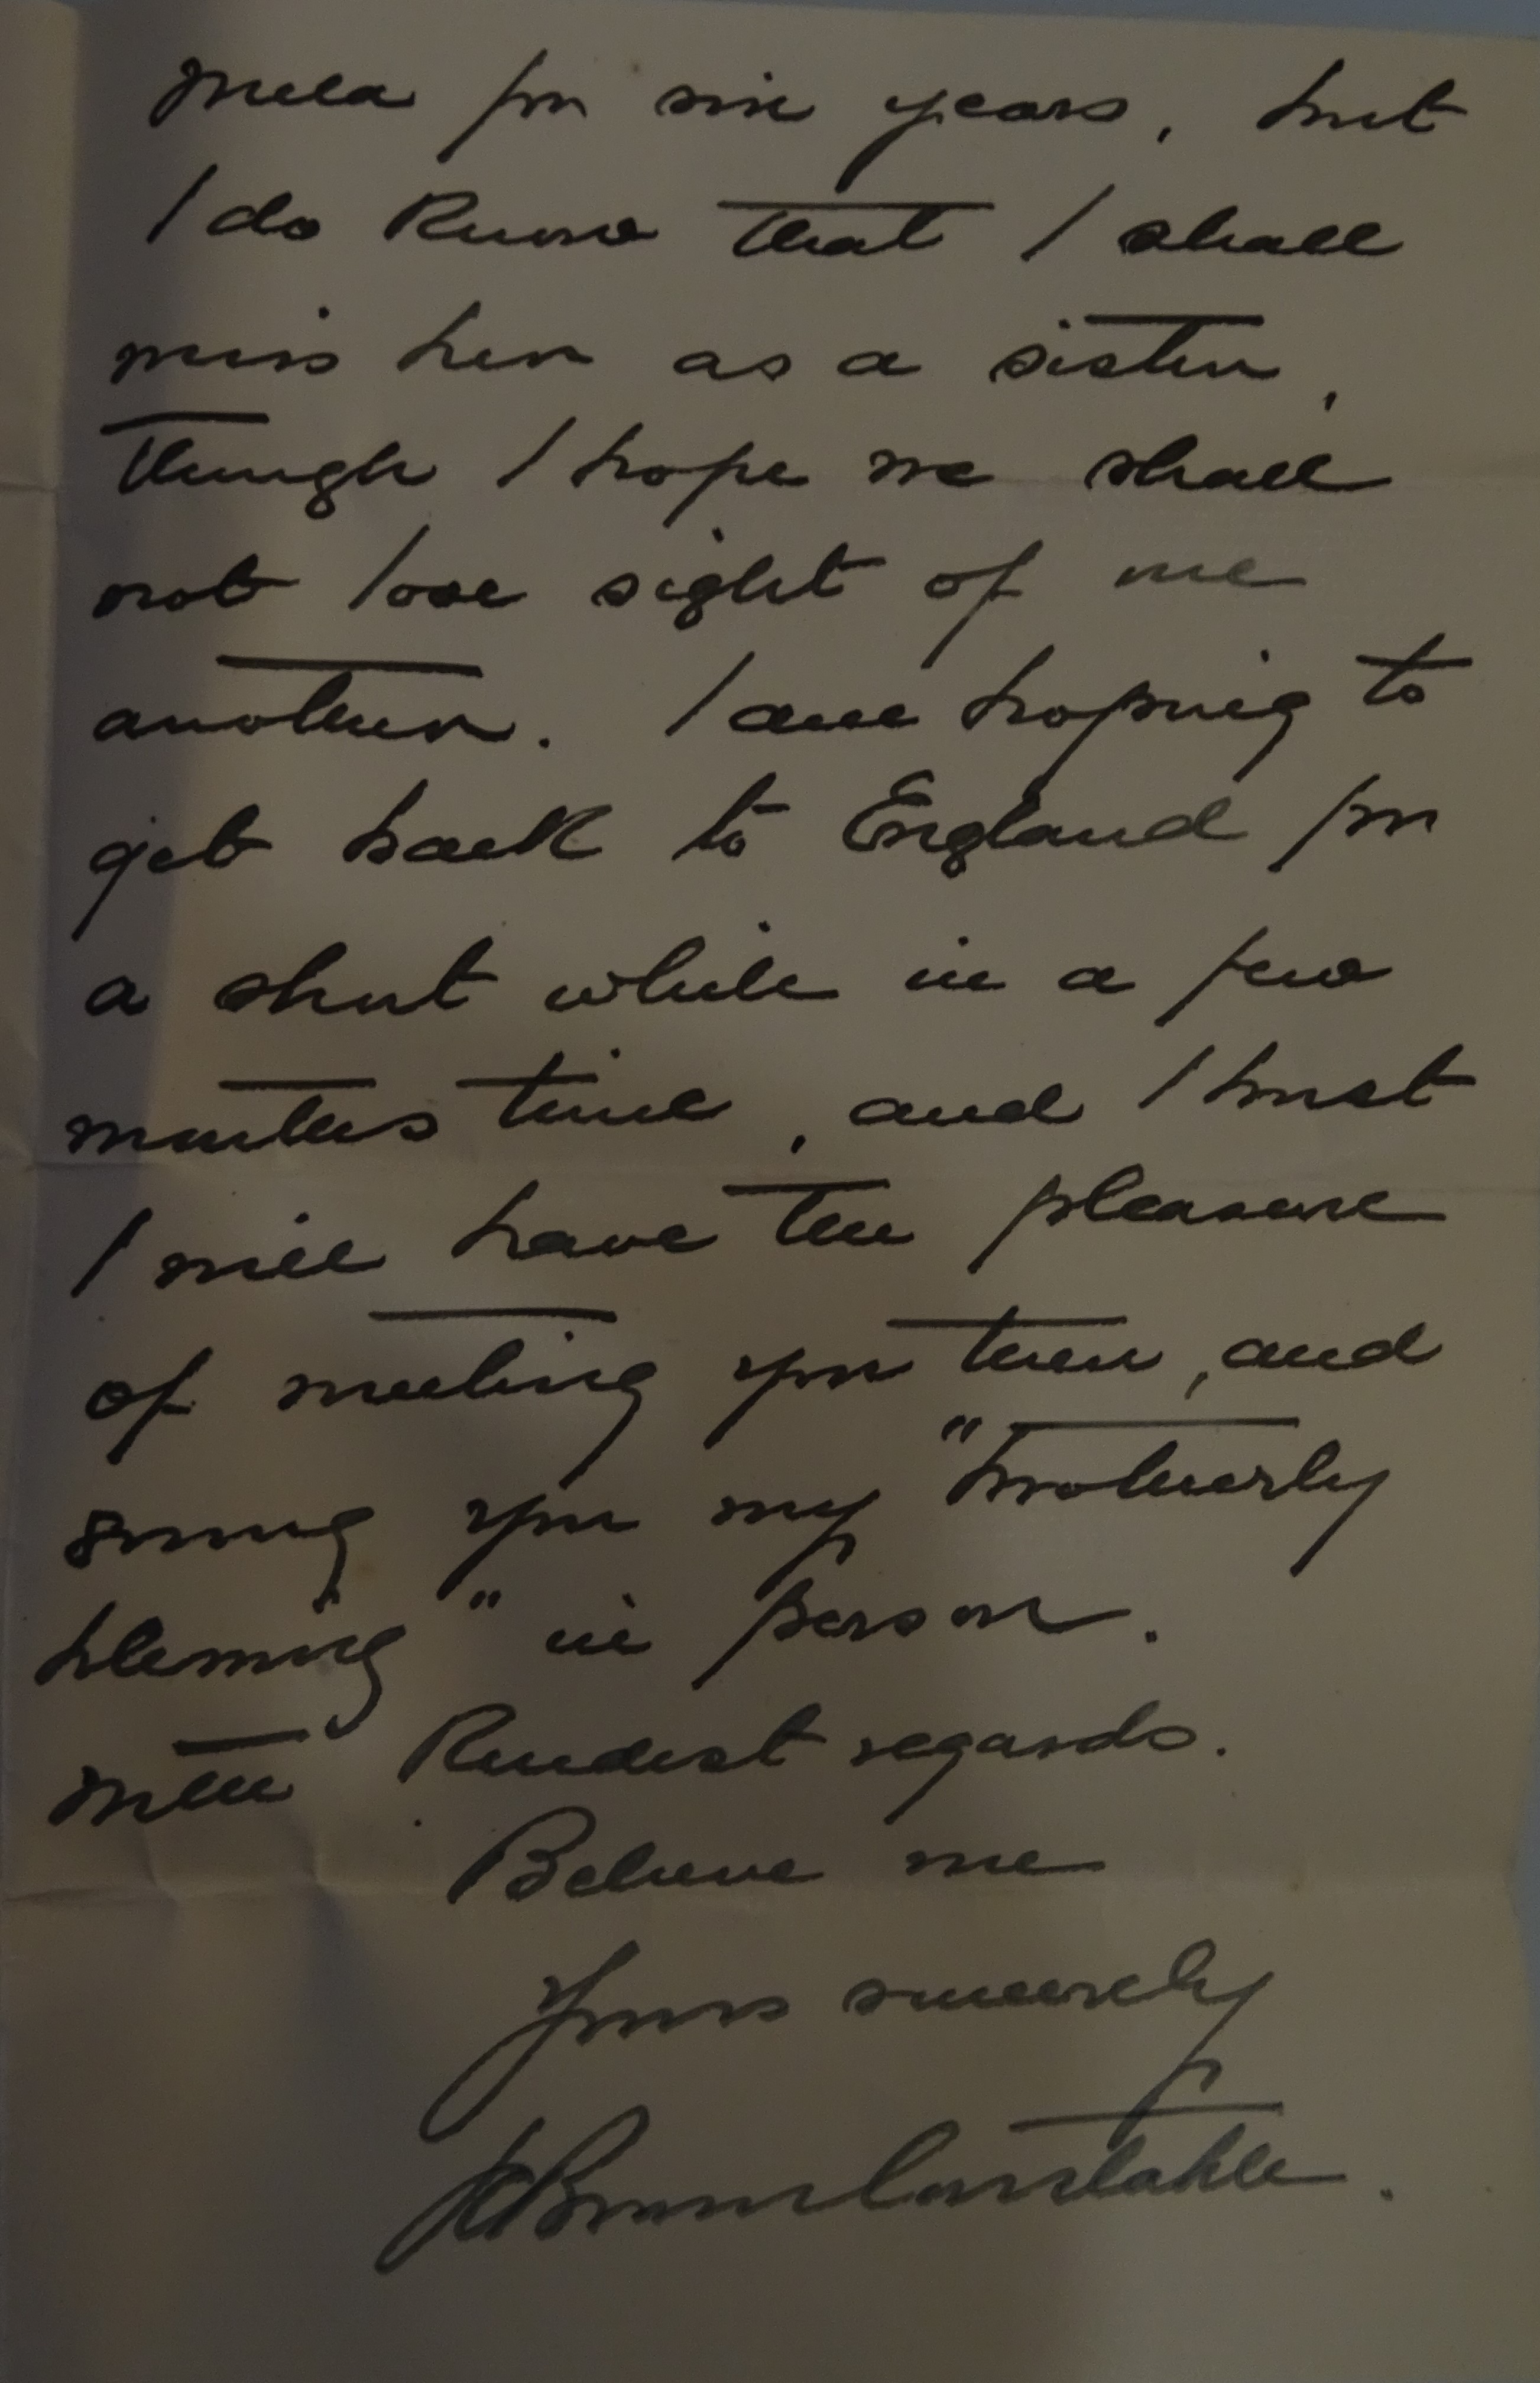 for six years, but
I do know that I shall
miss her as a sister,
though I hope we shall
not lose sight of one
another. I am hoping to
get back to England for
a short while in a few
months time, and I trust
I will have the pleasure
of meeting you then, and
giving you my "brotherly
blessing" in person.
With Kindest regards.
Believe me
Yours sincerely
Constable.